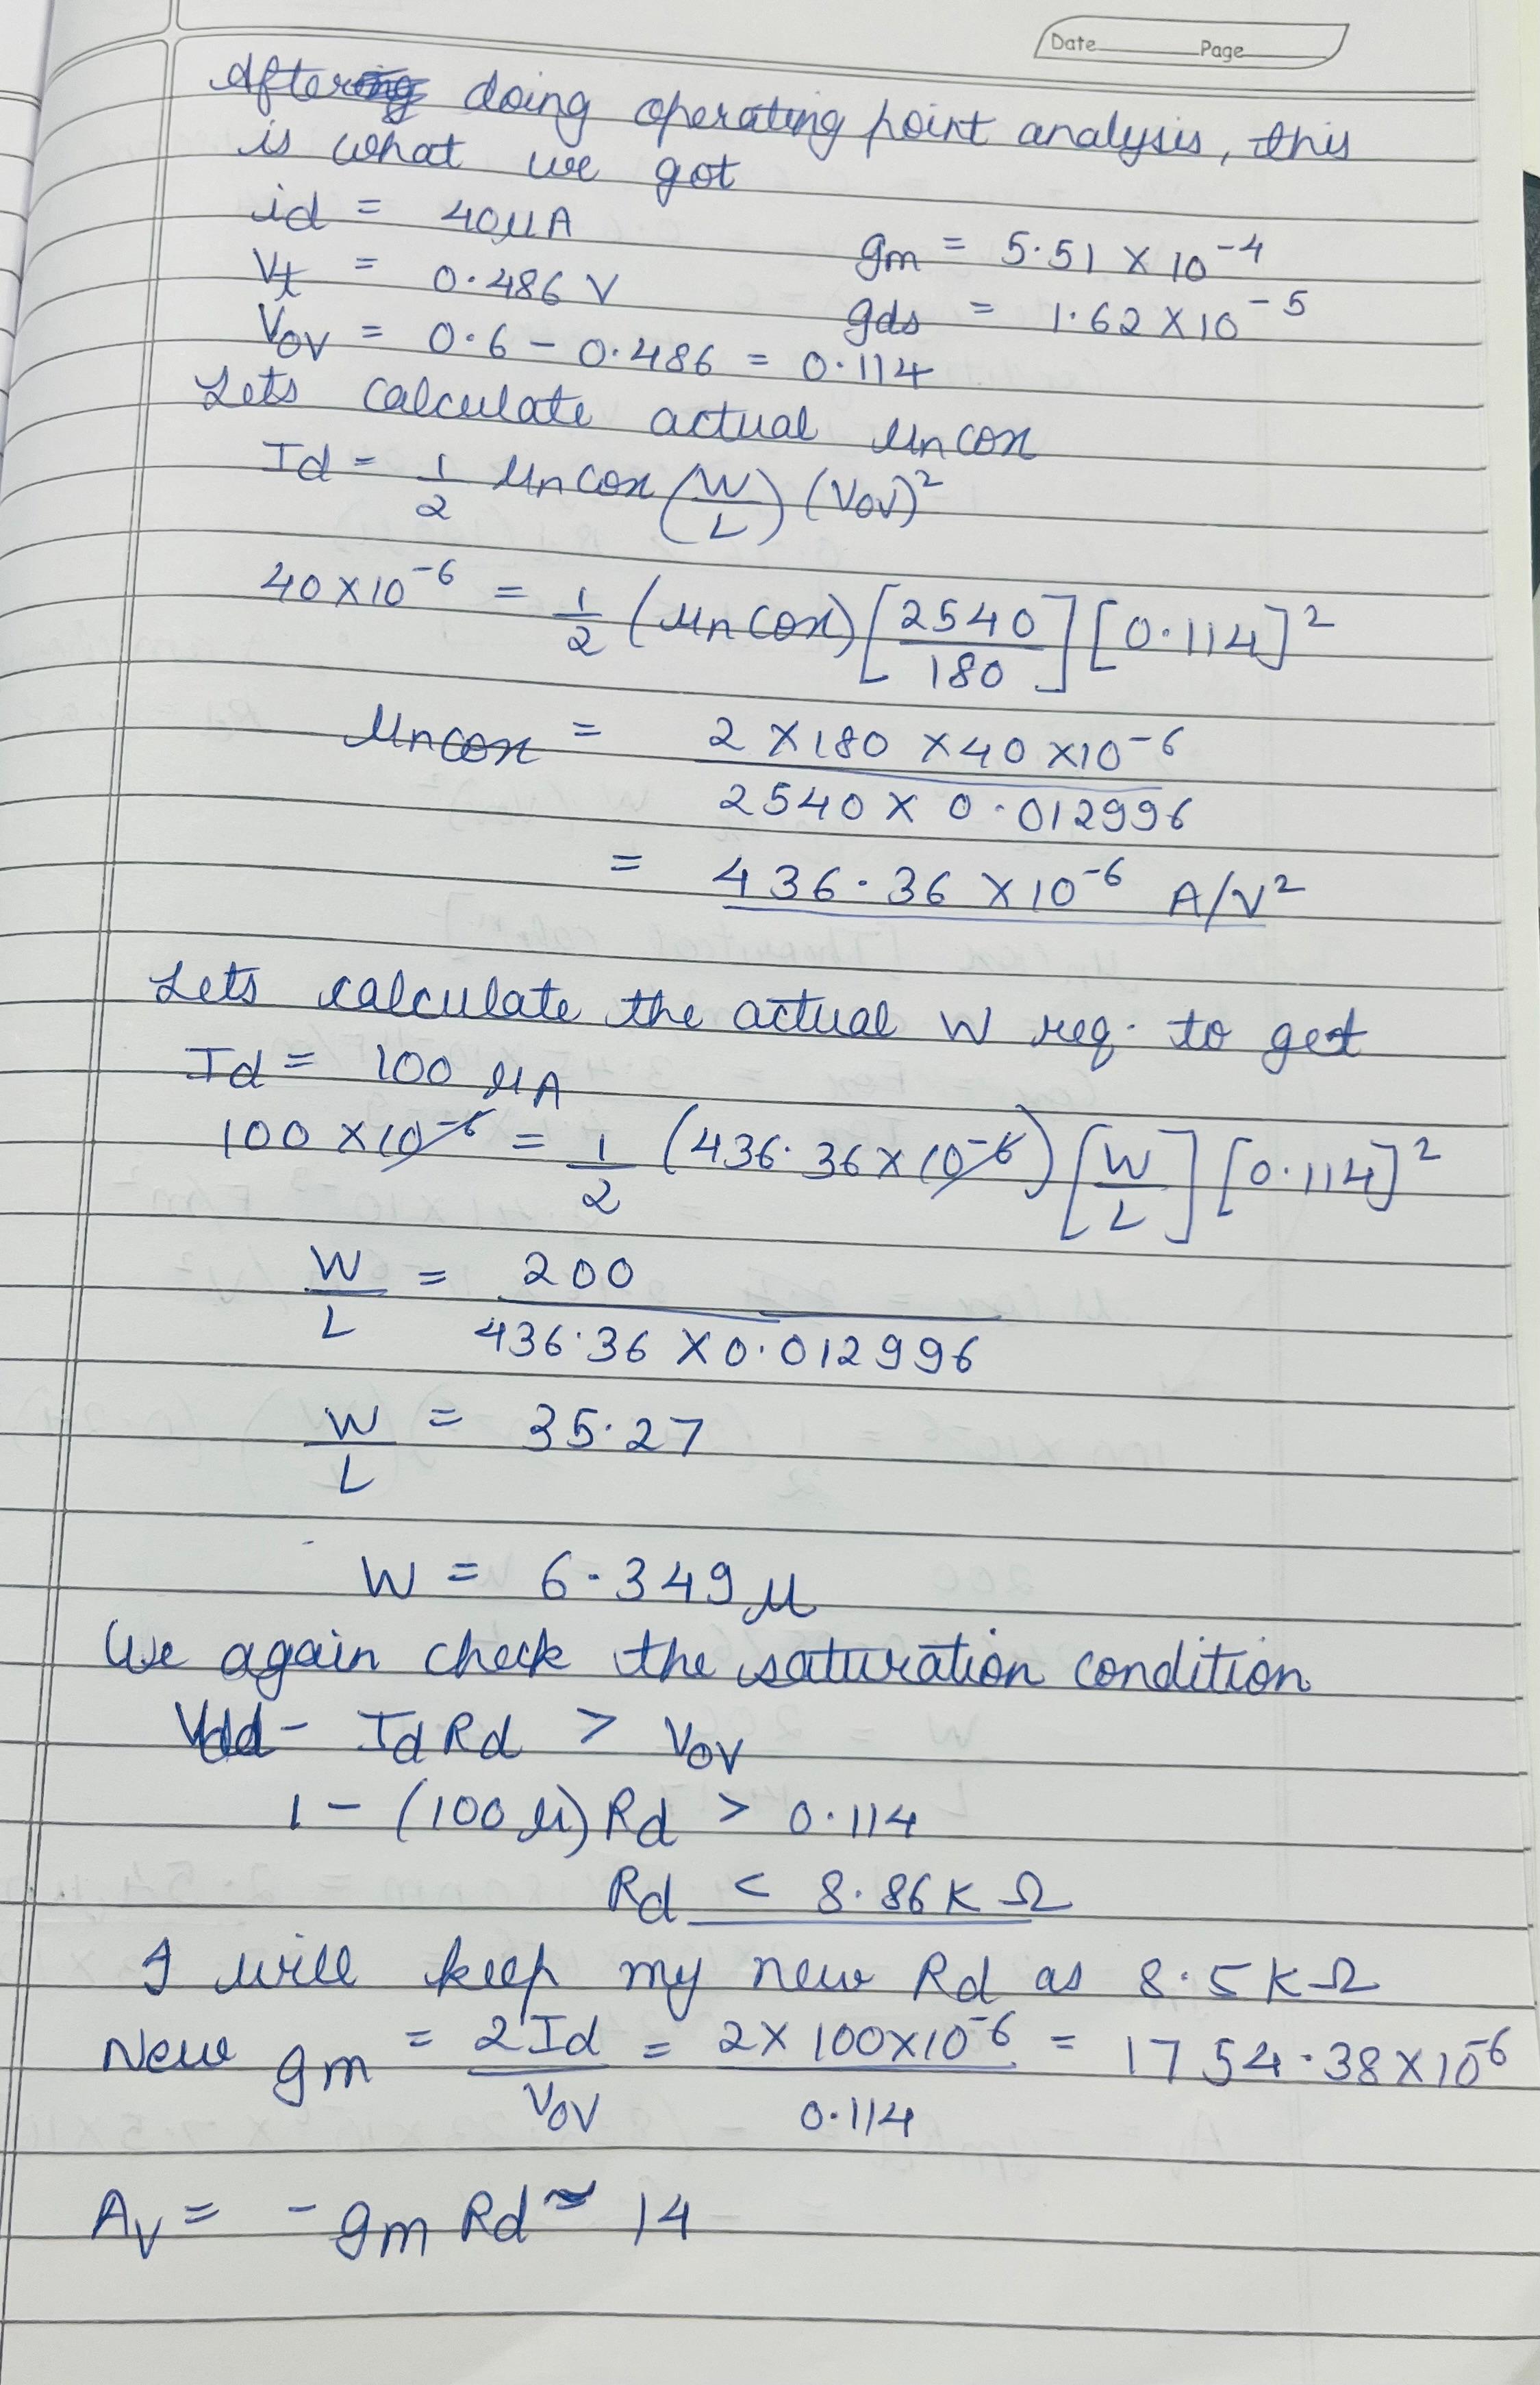 Date Page
After doing operating point analysis, this
is what we got
id = 40μA
gm = 5.51 × 10⁻⁴
Vt = 0.486 V
gds = 1.62 × 10⁻⁵
Vov = 0.6 - 0.486 = 0.114
Lets calculate actual μncox
Id = 1/2 μncox (W/L) (Vov)²
40 × 10⁻⁶ = 1/2 (μncox) [2540/180] [0.114]²
μncox = 2 × 180 × 40 × 10⁻⁶ / 2540 × 0.012996
= 436.36 × 10⁻⁶ A/V²
Lets calculate the actual W req. to get
Id = 100 μA
100 × 10⁻⁶ = 1/2 (436.36 × 10⁻⁶) [W/L] [0.114]²
W/L = 200 / 436.36 × 0.012996
W/L = 35.27
W = 6.349 μ
We again check the saturation condition
Vdd - IdRd > Vov
1 - (100 μ) Rd > 0.114
Rd < 8.86 K Ω
I will keep my new Rd as 8.5 K Ω
New gm = 2Id/Vov = 2 × 100 × 10⁻⁶ / 0.114 = 1754.38 × 10⁻⁶
Av = - gm Rd ≈ 14